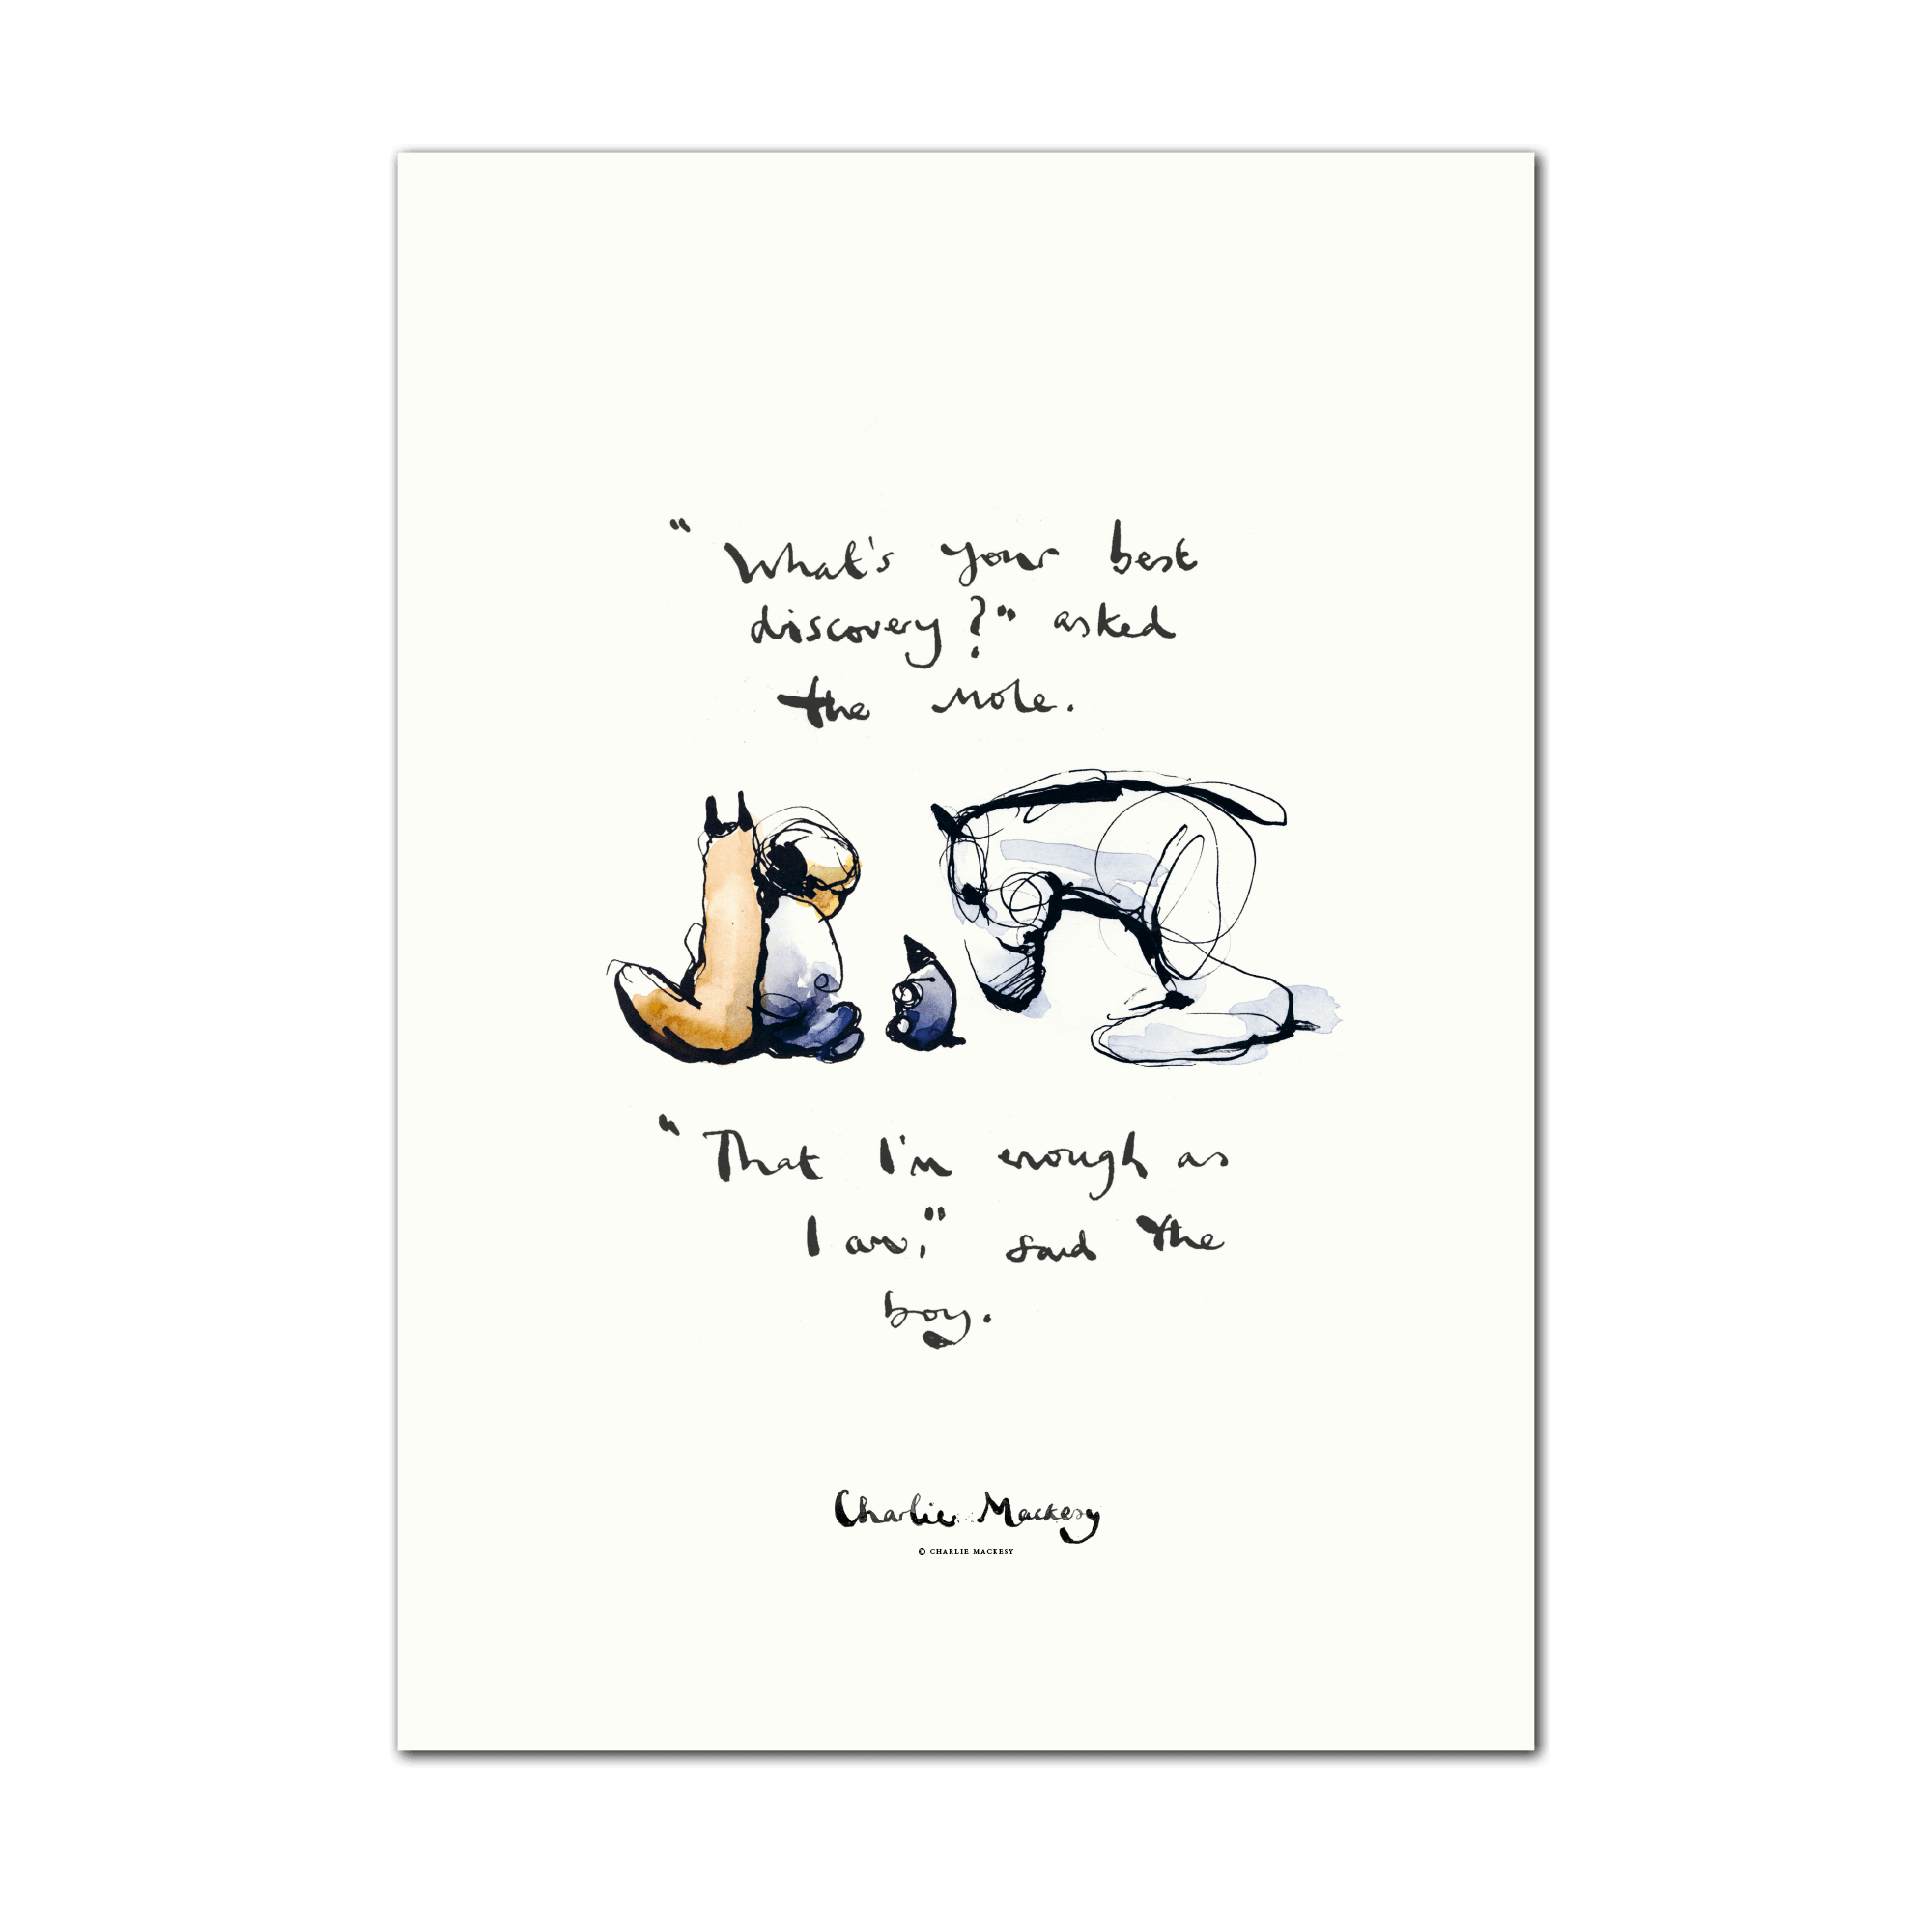 "What's your best
discovery?" asked
the mole.
"That I'm enough as
I am," said the
boy.
Charlie Mackesy
© CHARLIE MACKESY